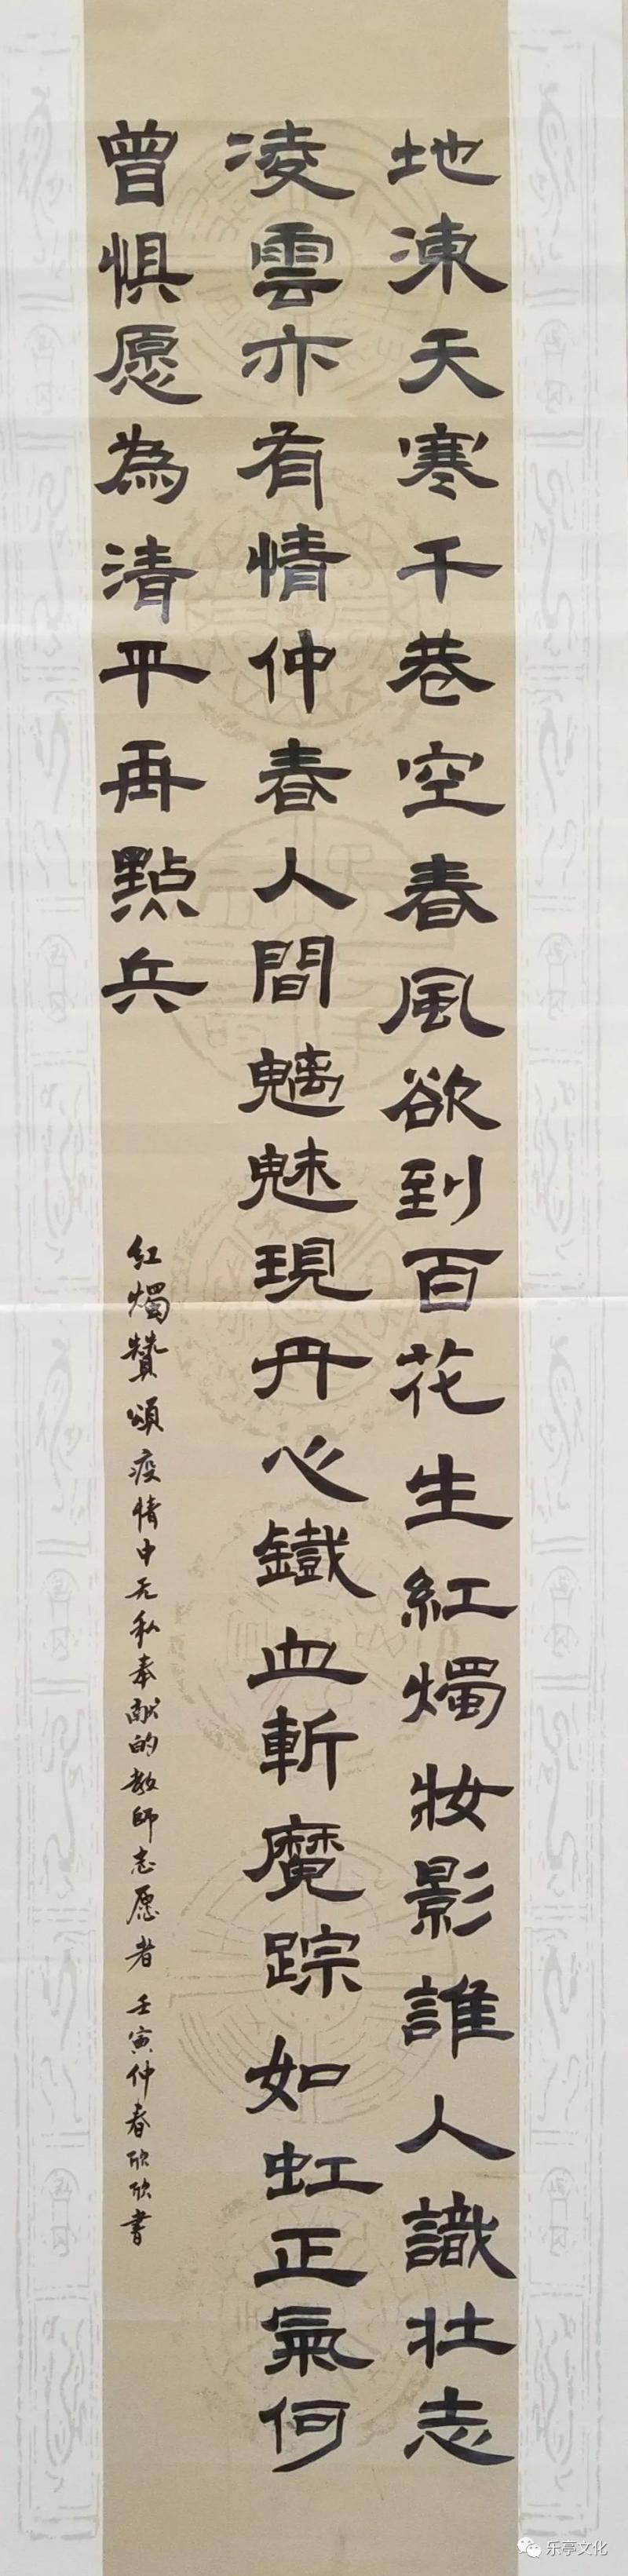 地凍天寒千巷空春風欲到百花生紅燭妝影誰人識壯志
凌雲亦有情仲春人間魑魅現丹心鐵血斬魔踪如虹正氣何
曾惧愿為清平再點兵
红燭贊頌疫情中无私奉献的教師志愿者壬寅仲春欣欣書
乐亭文化